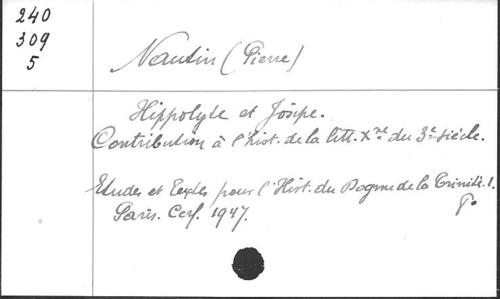 240
309
5
Nautin (Pierre)
Hippolyte et Josipe.
Contribution à l'hist. de la litt. Xne du 3e siècle.
Etudes et Textes pour l'Hist. du Dogme de la Trinité. 1.
Paris. Cerf. 1947.